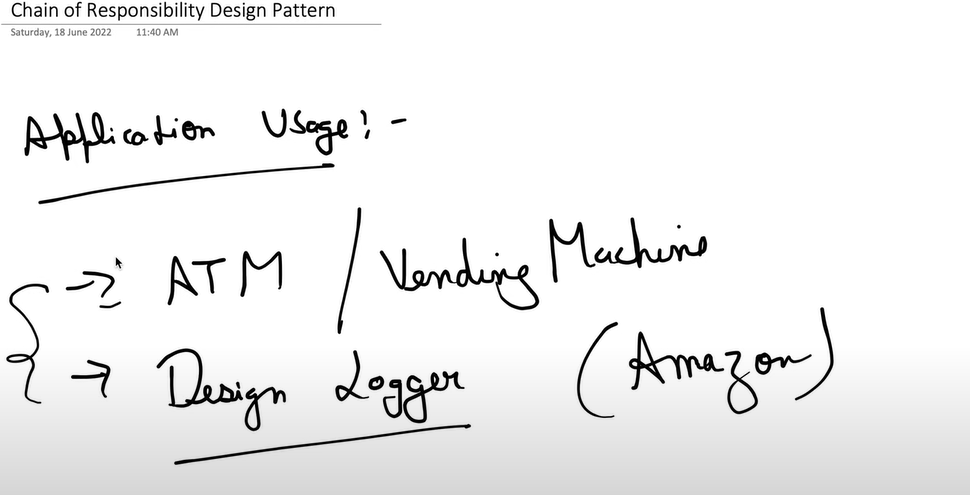 Chain of Responsibility Design Pattern
Saturday, 18 June 2022 11:40 AM
Application Usage: -
→ ATM / Vending Machine
→ Design Logger (Amazon)